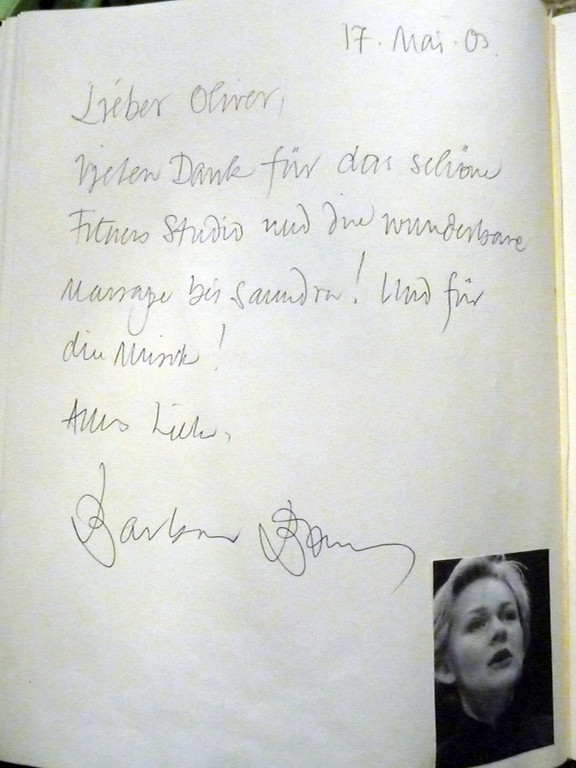 17. Mai. 03.
Lieber Oliver,
Vielen Dank für das schöne
Fitness Studio und die wunderbare
Massage bei Saundra! Und für
die Musik!
Alles Liebe,
Barbara